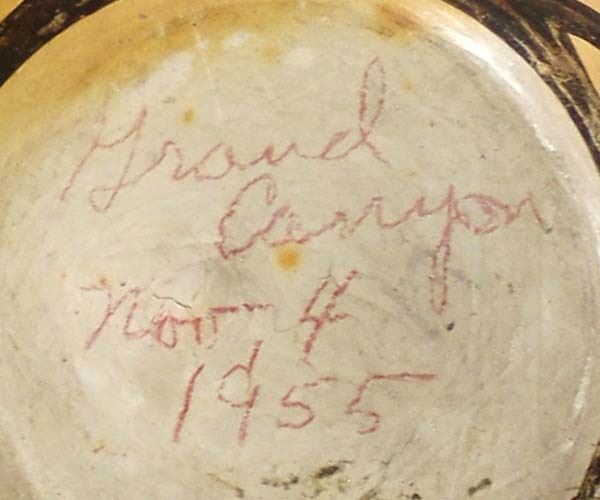 Grand
Canyon
Nov 4
1955